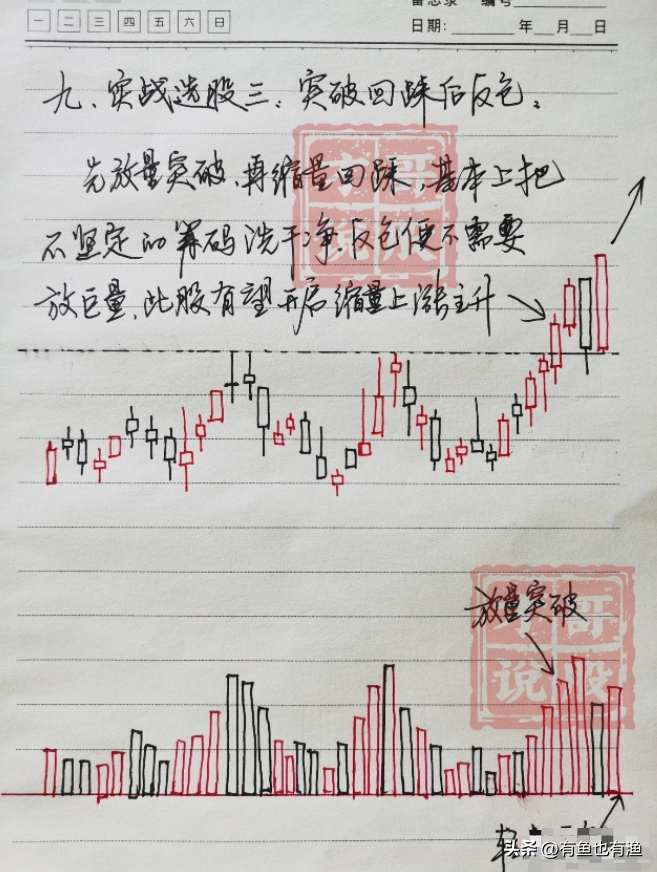 备忘录 编号
一 二 三 四 五 六 日
日期: 年 月 日
九、实战选股三：突破回踩后反包。
先放量突破，再缩量回踩，基本上把
不坚定的筹码洗干净，反包便不需要
放巨量，此股有望开启缩量上涨主升
哥
说股
放量突破
哥
说股
轻
头条 @有鱼也有渔